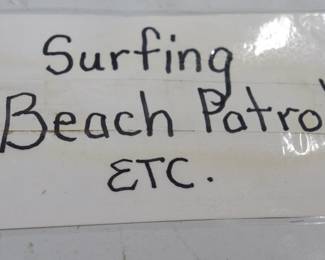 Surfing
Beach Patrol
ETC.